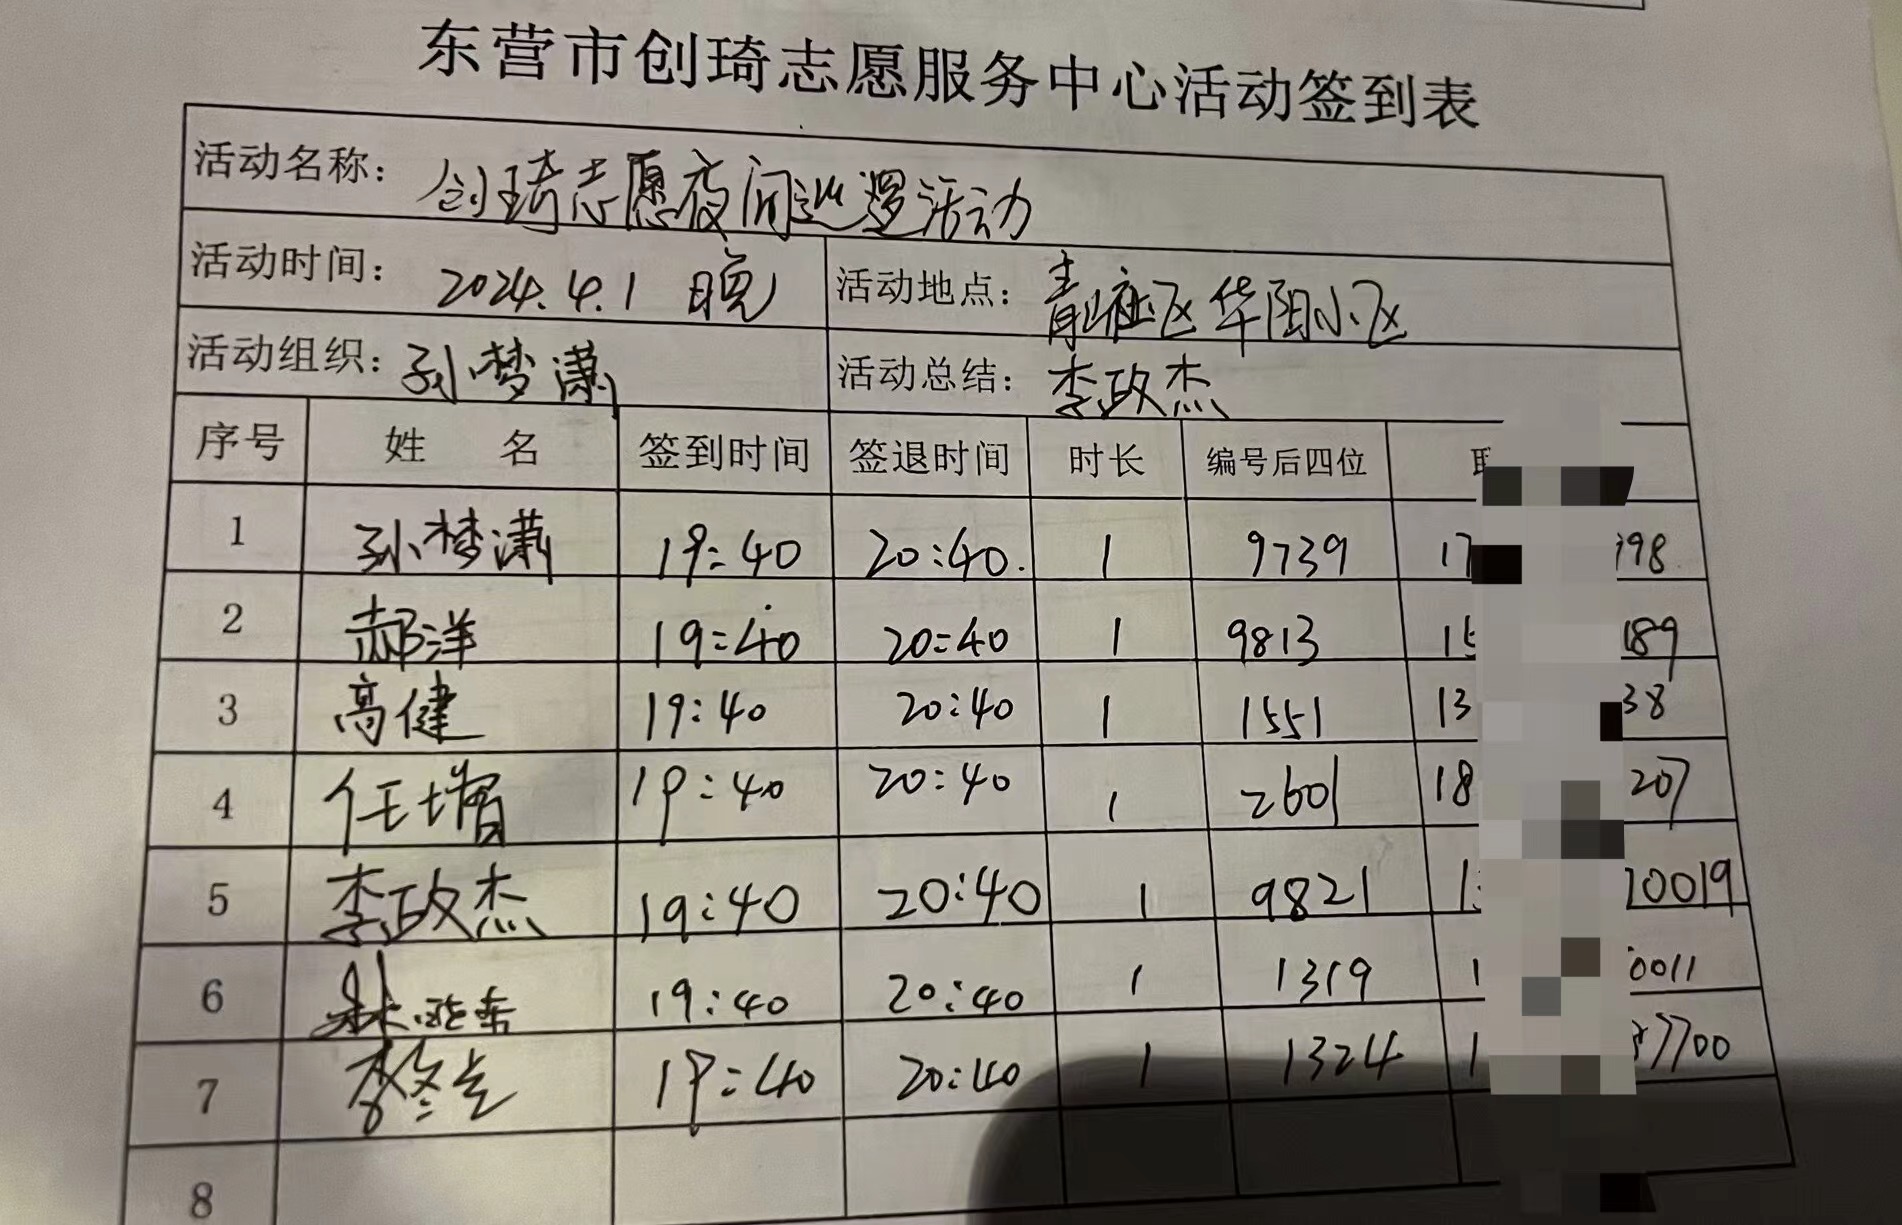 东营市创琦志愿服务中心活动签到表
活动名称：创琦志愿夜间巡逻活动
活动时间：2024.4.1 晚 活动地点：社区华阳小区
活动组织：孙梦潇 活动总结：李政杰
序号 姓 名 签到时间 签退时间 时长 编号后四位
1 孙梦潇 19:40 20:40. 1 9739 17 98
2 郝洋 19:40 20:40 1 9813 15 189
3 高健 19:40 20:40 1 1551 13 38
4 任增 19:40 20:40 1 2601 18 207
5 李政杰 19:40 20:40 1 9821 1 0019
6 19:40 20:40 1 1319 1 0011
7 19:40 20:40 1 1324 1 7700
8